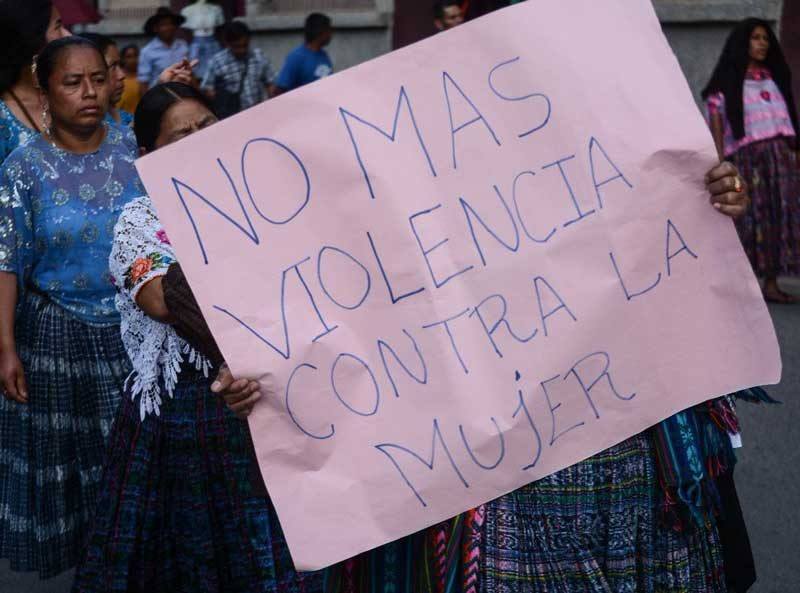 NO MAS
VIOLENCIA
CONTRA LA
MUJER